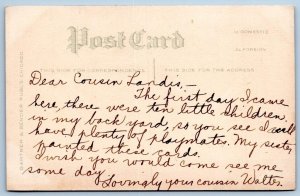 Post Card
DOMESTIC
FOREIGN
THIS SIDE FOR CORRESPONDENCE
THIS SIDE FOR THE ADDRESS
Dear Cousin Landis,—
The first day I came
here, there were ten little children
in my back yard, so you see I will
have plenty of playmates. My sister
painted these cards.
I wish you would come see me
some day.
Lovingly your cousin Walter.